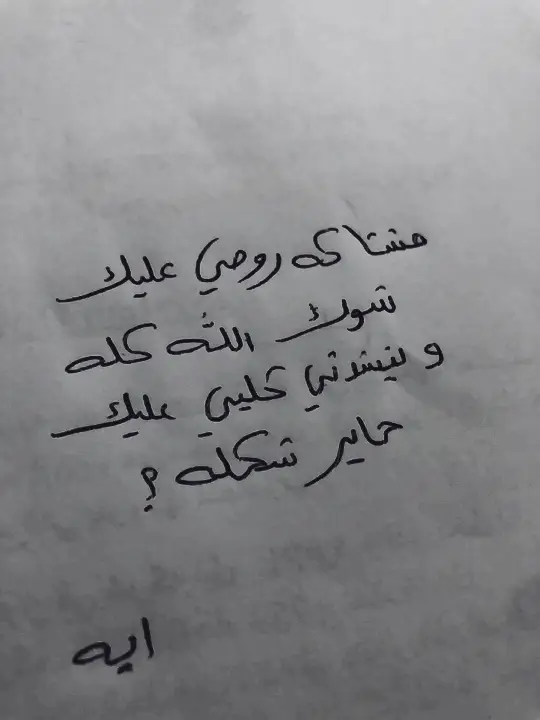 مشتاكه روحي عليك
شوك الله كله
وينشدني كليبي عليك
حاير شكله ؟
ايه